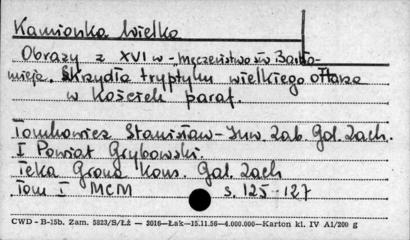 Kamionka Wielka
Obrazy z XVI w - Męczeństwo św Bartło-
mieja. Skrzydła tryptyku wielkiego ołtarza
w Kościele paraf.
Tomkowicz Stanisław - Inw. Zab. Gal. Zach.
I Powiat Grybowski.
Teka Grona Kons. Gal. Zach
Tom I MCM s. 125-127
CWD - B-15b. Zam. 5823/S/ŁŻ — 3016—Łak—15.11.56—4.000.000—Karton kl. IV A1/200 g